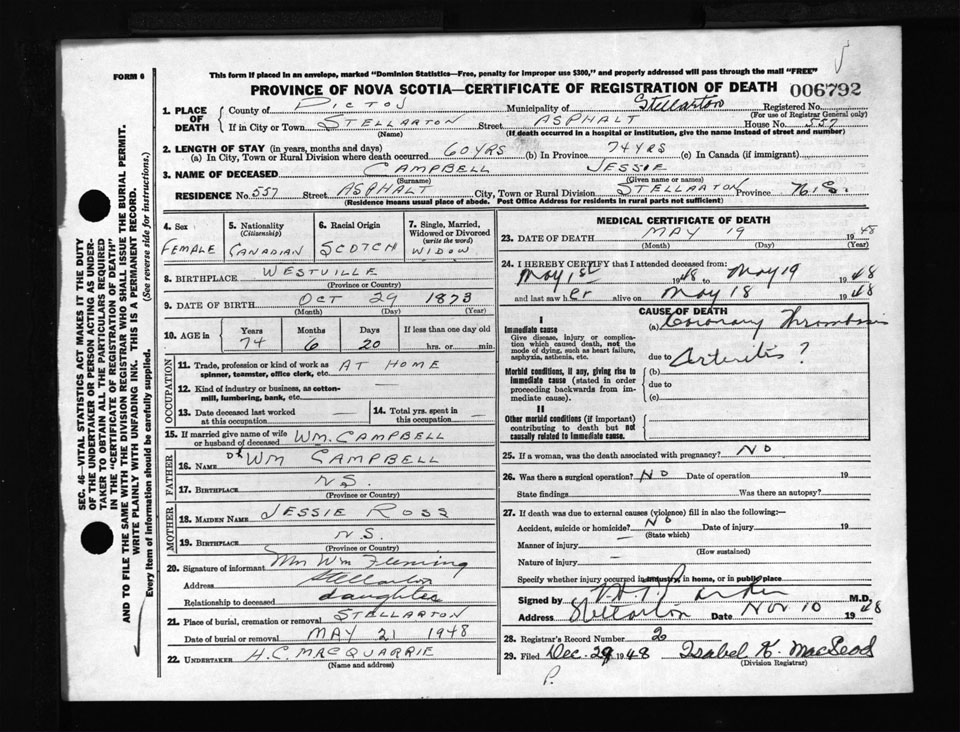 FORM 6
This form if placed in an envelope, marked "Dominion Statistics—Free, penalty for improper use $300," and properly addressed will pass through the mail "FREE"
PROVINCE OF NOVA SCOTIA—CERTIFICATE OF REGISTRATION OF DEATH 006792
1. PLACE OF DEATH
County of PICTOU Municipality of Stellarton Registered No.
(For use of Registrar General only)
If in City or Town STELLARTON Street ASPHALT House No. 557
(Name) (If death occurred in a hospital or institution, give the name instead of street and number)
2. LENGTH OF STAY (in years, months and days)
(a) In City, Town or Rural Division where death occurred 60 YRS (b) In Province 74 YRS (c) In Canada (if immigrant)
3. NAME OF DECEASED CAMPBELL JESSIE
(Surname) (Given name or names)
RESIDENCE No. 557 Street ASPHALT City, Town or Rural Division STELLARTON Province N.S.
(Residence means usual place of abode. Post Office Address for residents in rural parts not sufficient)
4. Sex FEMALE
5. Nationality (Citizenship) CANADIAN
6. Racial Origin SCOTCH
7. Single, Married, Widowed or Divorced (write the word) WIDOW
8. BIRTHPLACE WESTVILLE
(Province or Country)
9. DATE OF BIRTH OCT 29 1873
(Month) (Day) (Year)
10. AGE in Years Months Days If less than one day old
74 6 20 hrs. or min.
OCCUPATION
11. Trade, profession or kind of work as spinner, teamster, office clerk, etc. AT HOME
12. Kind of industry or business, as cotton-mill, lumbering, bank, etc. —
13. Date deceased last worked at this occupation —
14. Total yrs. spent in this occupation —
15. If married give name of wife or husband of deceased WM. CAMPBELL
FATHER
16. Name WM CAMPBELL
17. Birthplace N.S.
(Province or Country)
MOTHER
18. Maiden Name JESSIE ROSS
19. Birthplace N.S.
(Province or Country)
20. Signature of informant Mrs Wm Fleming
Address Stellarton
Relationship to deceased daughter
21. Place of burial, cremation or removal STELLARTON
Date of burial or removal MAY 21 1948
22. UNDERTAKER H.C. MACQUARRIE
(Name and address)
MEDICAL CERTIFICATE OF DEATH
23. DATE OF DEATH MAY 19 1948
(Month) (Day) (Year)
24. I HEREBY CERTIFY that I attended deceased from:
May 1st 1948 to May 19 1948
and last saw her alive on May 18 1948
CAUSE OF DEATH
I
Immediate cause
Give disease, injury or complication which caused death, not the mode of dying, such as heart failure, asphyxia, asthenia, etc.
(a) Coronary Thrombosis
due to Arteritis?
Morbid conditions, if any, giving rise to immediate cause (stated in order proceeding backwards from immediate cause).
(b)
due to
(c)
II
Other morbid conditions (if important) contributing to death but not causally related to immediate cause.
25. If a woman, was the death associated with pregnancy? NO
26. Was there a surgical operation? NO Date of operation 19
State findings Was there an autopsy?
27. If death was due to external causes (violence) fill in also the following:—
Accident, suicide or homicide? NO Date of injury 19
(State which)
Manner of injury —
(How sustained)
Nature of injury —
Specify whether injury occurred in industry, in home, or in public place
Signed by M.D.
Address Stellarton Date NOV 10 1948
28. Registrar's Record Number 2
29. Filed Dec. 29 1948 Isabel K. MacLeod
(Division Registrar)
P.
SEC. 46—VITAL STATISTICS ACT MAKES IT THE DUTY
OF THE UNDERTAKER OR PERSON ACTING AS UNDER-
TAKER TO OBTAIN ALL THE PARTICULARS REQUIRED
IN THE "CERTIFICATE OF REGISTRATION OF DEATH"
AND TO FILE THE SAME WITH THE DIVISION REGISTRAR WHO SHALL ISSUE THE BURIAL PERMIT.
WRITE PLAINLY WITH UNFADING INK. THIS IS A PERMANENT RECORD.
Every item of information should be carefully supplied. (See reverse side for instructions.)